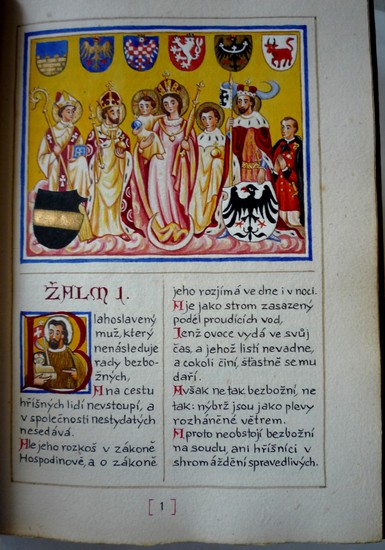 ŽALM 1.
Blahoslavený
muž, který
nenásleduje
rady bezbo-
žných,
A na cestu
hříšných lidí nevstoupí, a
v společnosti nestydatých
nesedává.
Ale jeho rozkoš v zákoně
Hospodinově, a o zákoně
jeho rozjímá ve dne i v noci.
A je jako strom zasazený
podél proudících vod,
Jenž ovoce vydá ve svůj
čas, a jehož listí nevadne,
a cokoli činí, šťastně se mu
daří.
Avšak ne tak bezbožní, ne
tak: nýbrž jsou jako plevy
rozháněné větrem.
A proto neobstojí bezbožní
na soudu, ani hříšníci v
shromáždění spravedlivých.
[1]